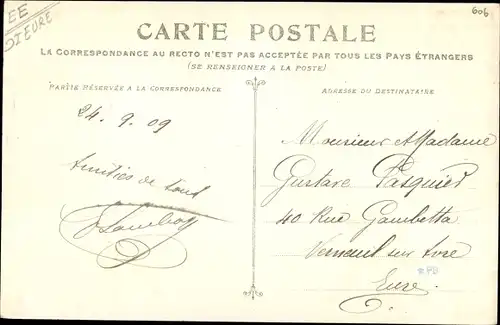 EE
DTEURE
606
CARTE POSTALE
LA CORRESPONDANCE AU RECTO N'EST PAS ACCEPTÉE PAR TOUS LES PAYS ÉTRANGERS
(SE RENSEIGNER A LA POSTE)
PARTIE RÉSERVÉE A LA CORRESPONDANCE
ADRESSE DU DESTINATAIRE
24. 9. 09
Monsieur & Madame
Amitiés de tous
Gustave Pasquier
40 Rue Gambetta
Verneuil sur Avre
RPB
Eure.